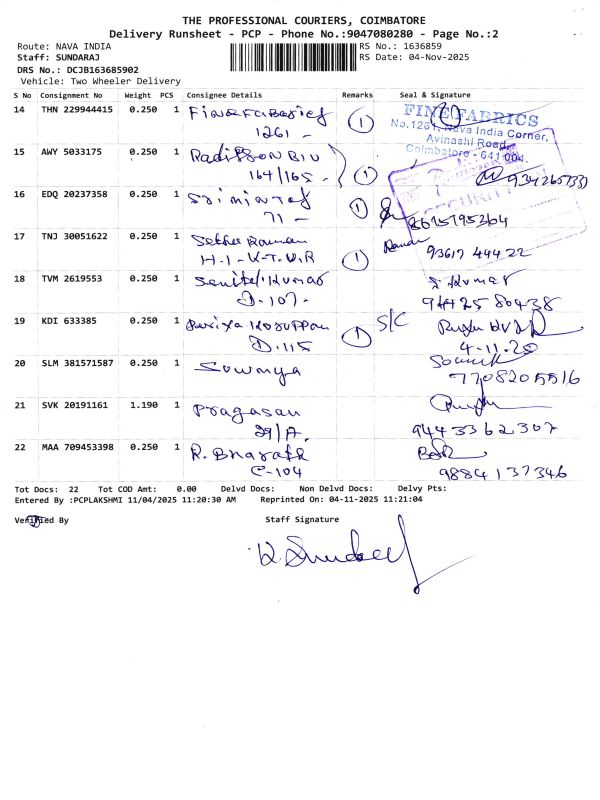 THE PROFESSIONAL COURIERS, COIMBATORE
Delivery Runsheet - PCP - Phone No.:9047080280 - Page No.:2
Route: NAVA INDIA
RS No.: 1636859
Staff: SUNDARAJ
RS Date: 04-Nov-2025
DRS No.: DCJB163685902
Vehicle: Two Wheeler Delivery
S No Consignment No Weight PCS Consignee Details Remarks Seal & Signature
14 THN 229944415 0.250 1
1261 - 1
FINE FABRICS
No.1261, Nava India Corner,
Avinashi Road,
Coimbatore - 641 004.
15 AWY 5033175 0.250 1 Radisson Blu
164/165 - 1
SECURITY
16 EDQ 20237358 0.250 1
71 - 1
17 TNJ 30051622 0.250 1 Raman
H-1-K.T.V.R 1 93617 44422
18 TVM 2619553 0.250 1 Senthil Kumar S. Kumar
D-107- 94425 80438
19 KDI 633385 0.250 1 Karuppan S/C
D.115 1 4-11-25
20 SLM 381571587 0.250 1 Sowmya
7708205516
21 SVK 20191161 1.190 1 Pragasan
29/A. 9443362307
22 MAA 709453398 0.250 1 R. Bharath
C-104 9884137346
Tot Docs: 22 Tot COD Amt: 0.00 Delvd Docs: Non Delvd Docs: Delvy Pts:
Entered By :PCPLAKSHMI 11/04/2025 11:20:30 AM Reprinted On: 04-11-2025 11:21:04
Verified By Staff Signature